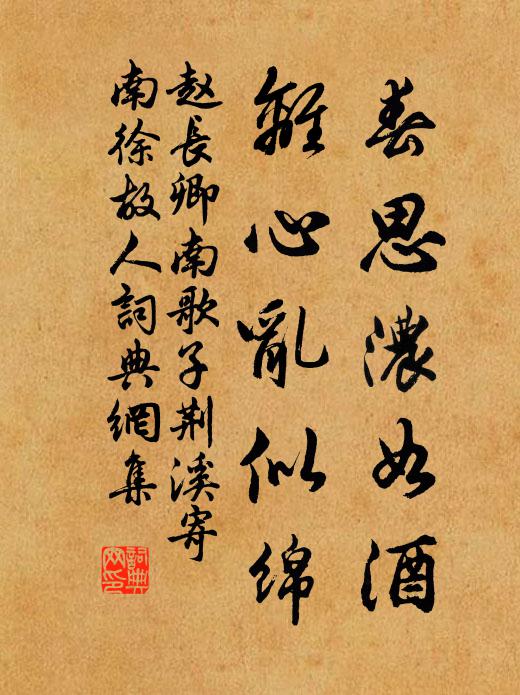 春思濃如酒
離心亂似綿
赵長卿南歌子荆溪寄
南徐故人詞典網集
詞典
网印